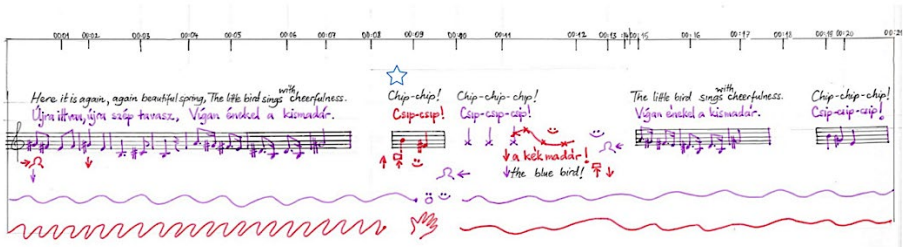 00:01 00:02 00:03 00:04 00:05 00:06 00:07 00:08 00:09 00:10 00:11 00:12 00:13 00:15 00:16 00:17 00:18 00:19 00:20 00:21
Here it is again, again beautiful spring, The little bird sings with cheerfulness.
Újra itt van, újra szép tavasz, Vígan énekel a kismadár.
Chip-chip!
Csip-csip!
Chip-chip-chip!
Csip-csip-csip!
a kék madár!
the blue bird!
The little bird sings with cheerfulness.
Vígan énekel a kismadár.
Chip-chip-chip!
Csip-csip-csip!